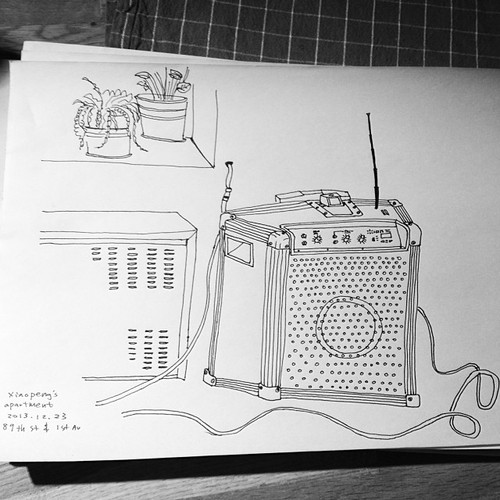 xiaopeng's
apartment
2013.12.23
89th St & 1st Av